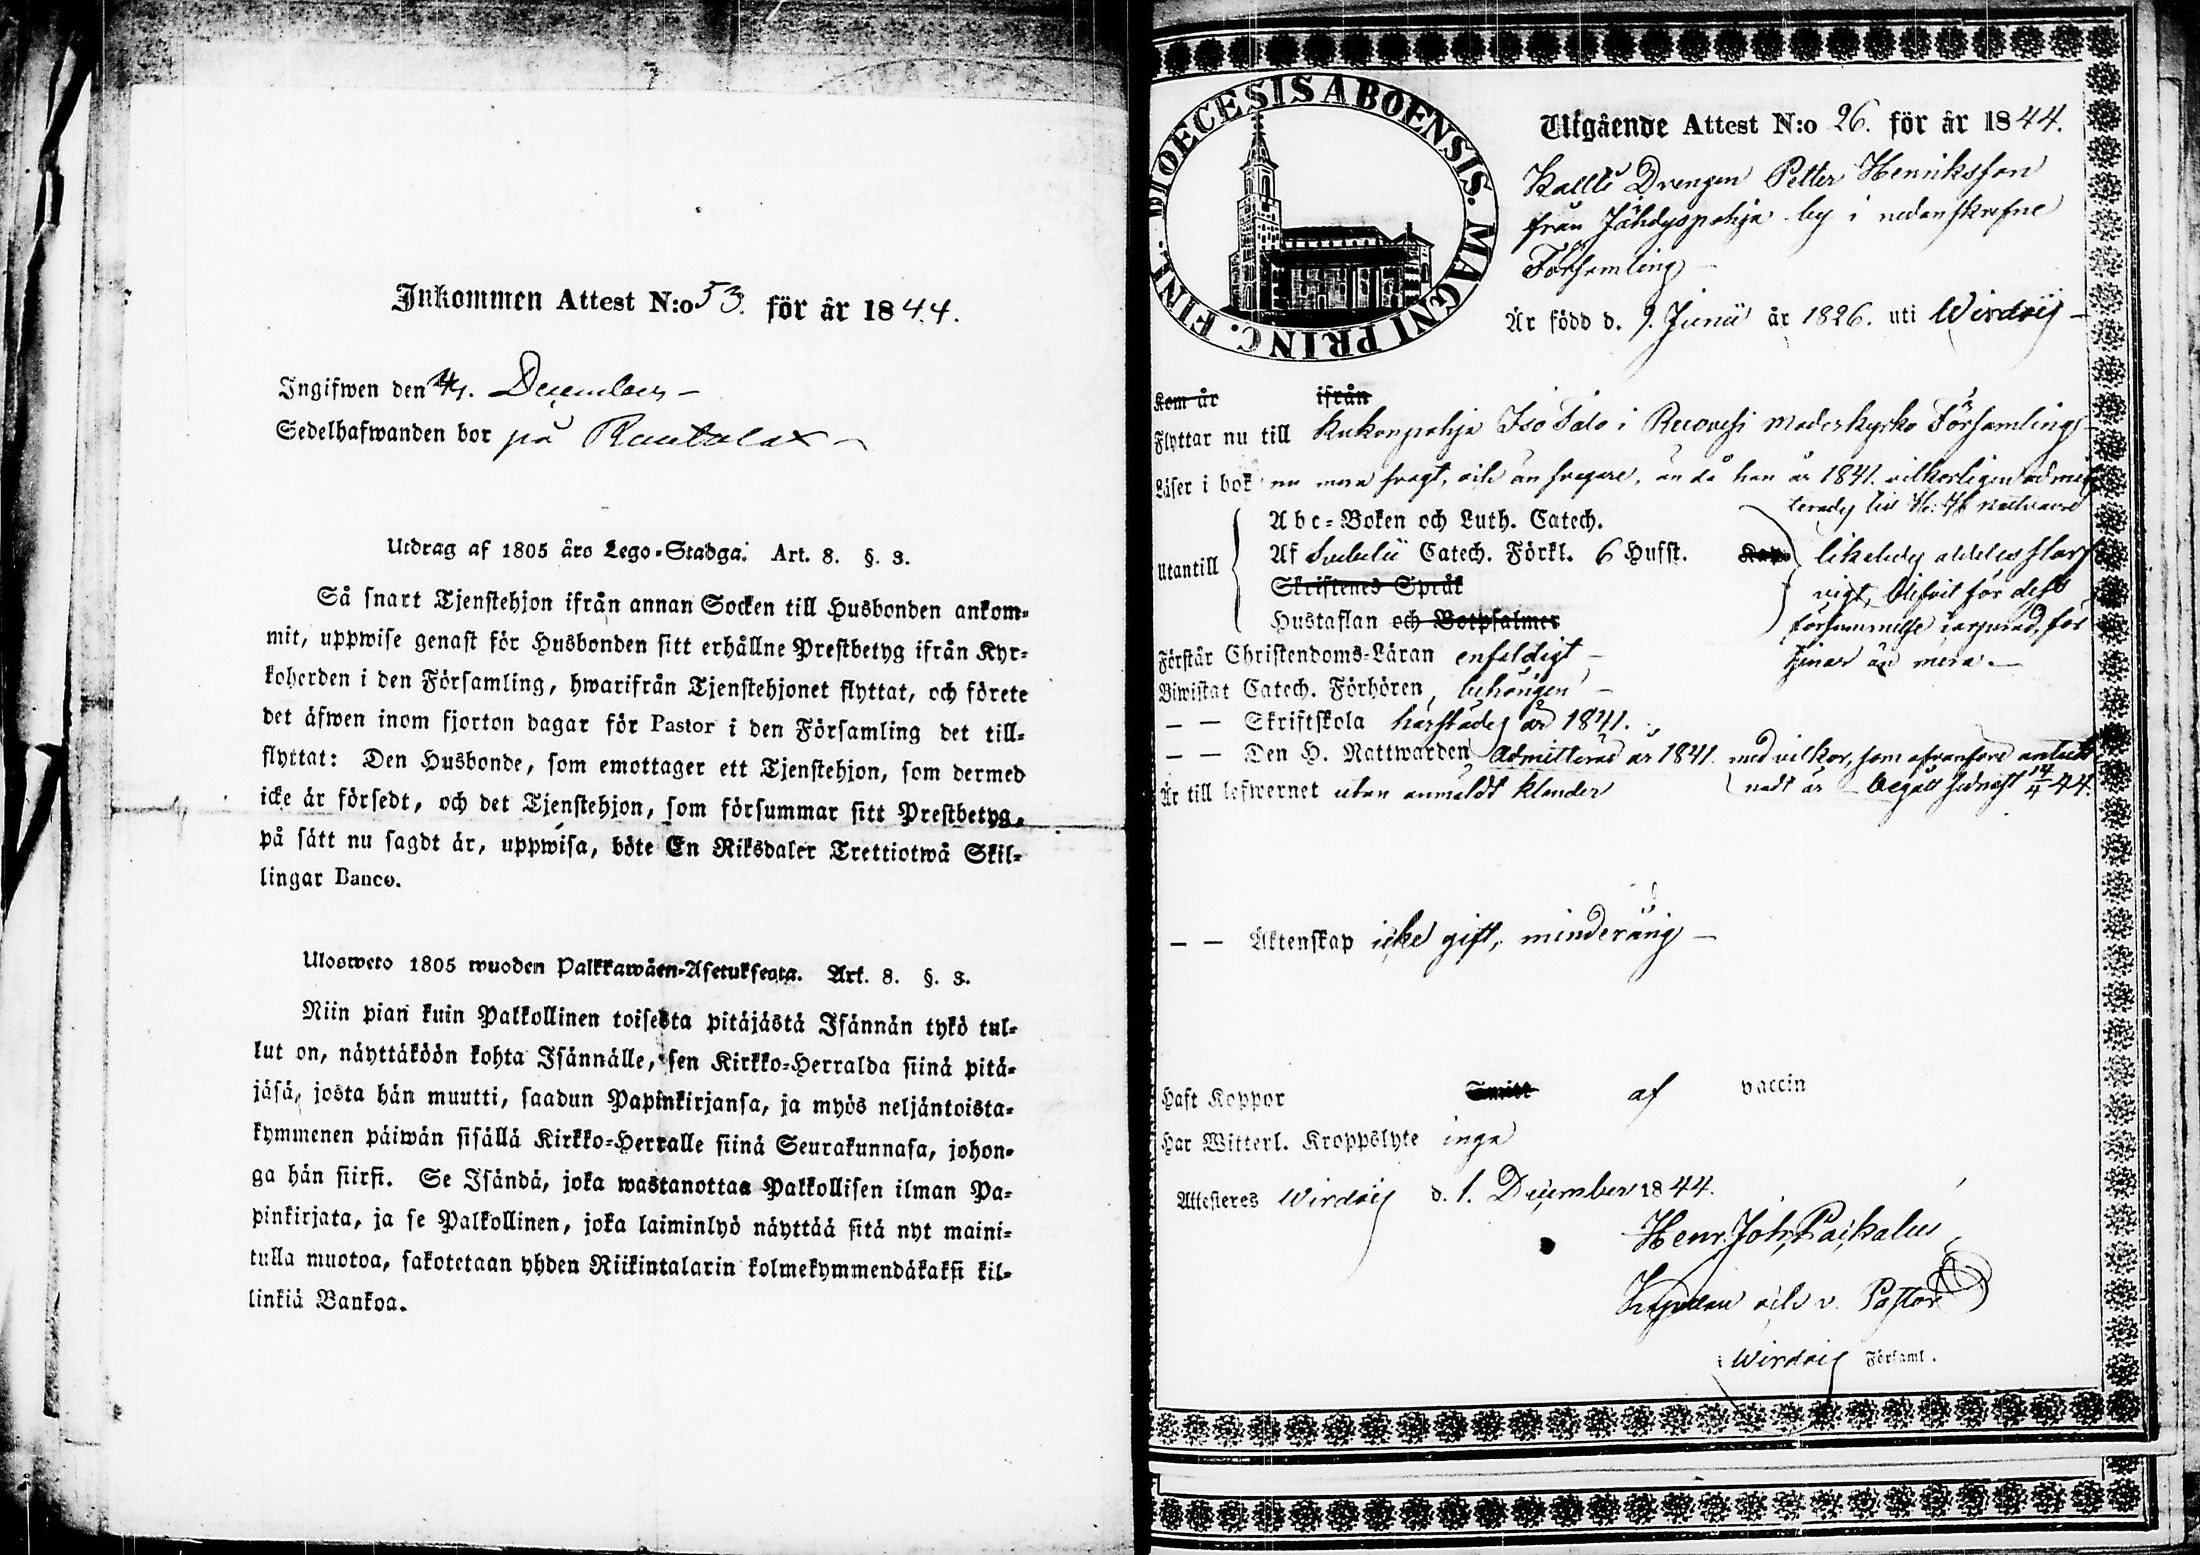 Inkommen Attest N:o 53. för år 1844.
Ingifwen den December –
Sedelhafwanden bor på Rautalax –
Utdrag af 1805 års Lego-Stadga. Art. 8. §. 3.
Så snart Tjenstehjon ifrån annan Socken till Husbonden ankom-
mit, uppwise genast för Husbonden sitt erhållne Prestbetyg ifrån Kyr-
koherden i den Församling, hwarifrån Tjenstehjonet flyttat, och förete
det äfwen inom fjorton dagar för Pastor i den Församling det till-
flyttat: Den Husbonde, som emottager ett Tjenstehjon, som dermed
icke är försedt, och det Tjenstehjon, som försummar sitt Prestbetyg,
på sätt nu sagdt är, uppwisa, böte En Riksdaler Trettiotwå Skil-
lingar Banco.
Ulosweto 1805 wuoden Palkkawäen-Asetuksesta. Art. 8. §. 3.
Niin pian kuin Palkollinen toisesta pitäjästä Isännän tykö tul-
lut on, näyttäköön kohta Isännälle, sen Kirkko-Herralda siinä pitä-
jäsä, josta hän muutti, saadun Papinkirjansa, ja myös neljäntoista-
kymmenen päiwän sisällä Kirkko-Herralle siinä Seurakunnasa, johon-
ga hän siirsi. Se Isändä, joka wastanottaa Palkollisen ilman Pa-
pinkirjata, ja se Palkollinen, joka laiminlyö näyttää sitä nyt maini-
tulla muotoa, sakotetaan yhden Riikintalarin kolmekymmendäkaksi kil-
linkiä Bankoa.
DIOECESIS ABOENSIS. MAGNI PRINC. FINL.
Utgående Attest N:o 26. för år 1844.
Drengen Petter Henriksson
från Jähdyspohja by i nedanskrefne
Församling –
Är född d. 9. Junii år 1826. uti Wirdois –
Kom år ifrån
Flyttar nu till Kukonpohja Iso Talo i Ruovesi Moderkyrko Församling
Läser i bok nu mera svagt, och än svagare, än då han år 1841. vilkorligen admit-
terades till H. H. Nattvard
Utantill
Abc-Boken och Luth. Catech.
Af Svebelii Catech. Förkl. 6 Hufst. Kap. likaledes alldeles slar-
Skriftenes Språk vigt, blifvit för dess
Hustaflan och Botpsalmer försummelse
Förstår Christendoms-Läran enfaldigt – än mera. –
Biwistat Catech. Förhören, behörigen –
– – Skriftskola härstädes år 1841.
– – Den H. Nattwarden Admitterad år 1841. med vilkor, som ofvanföre anteck-
Är till lefwernet utan anmäldt klander nadt är – Begått sednast 14/4 44.
– – Äktenskap icke gift, minderårig –
Haft Koppor Smitt af vaccin
Har Witterl. Kroppslyte inga
Attesteres Wirdois d. 1. December 1844.
Henr. Joh.
och v. Pastor
i Wirdois Församl.